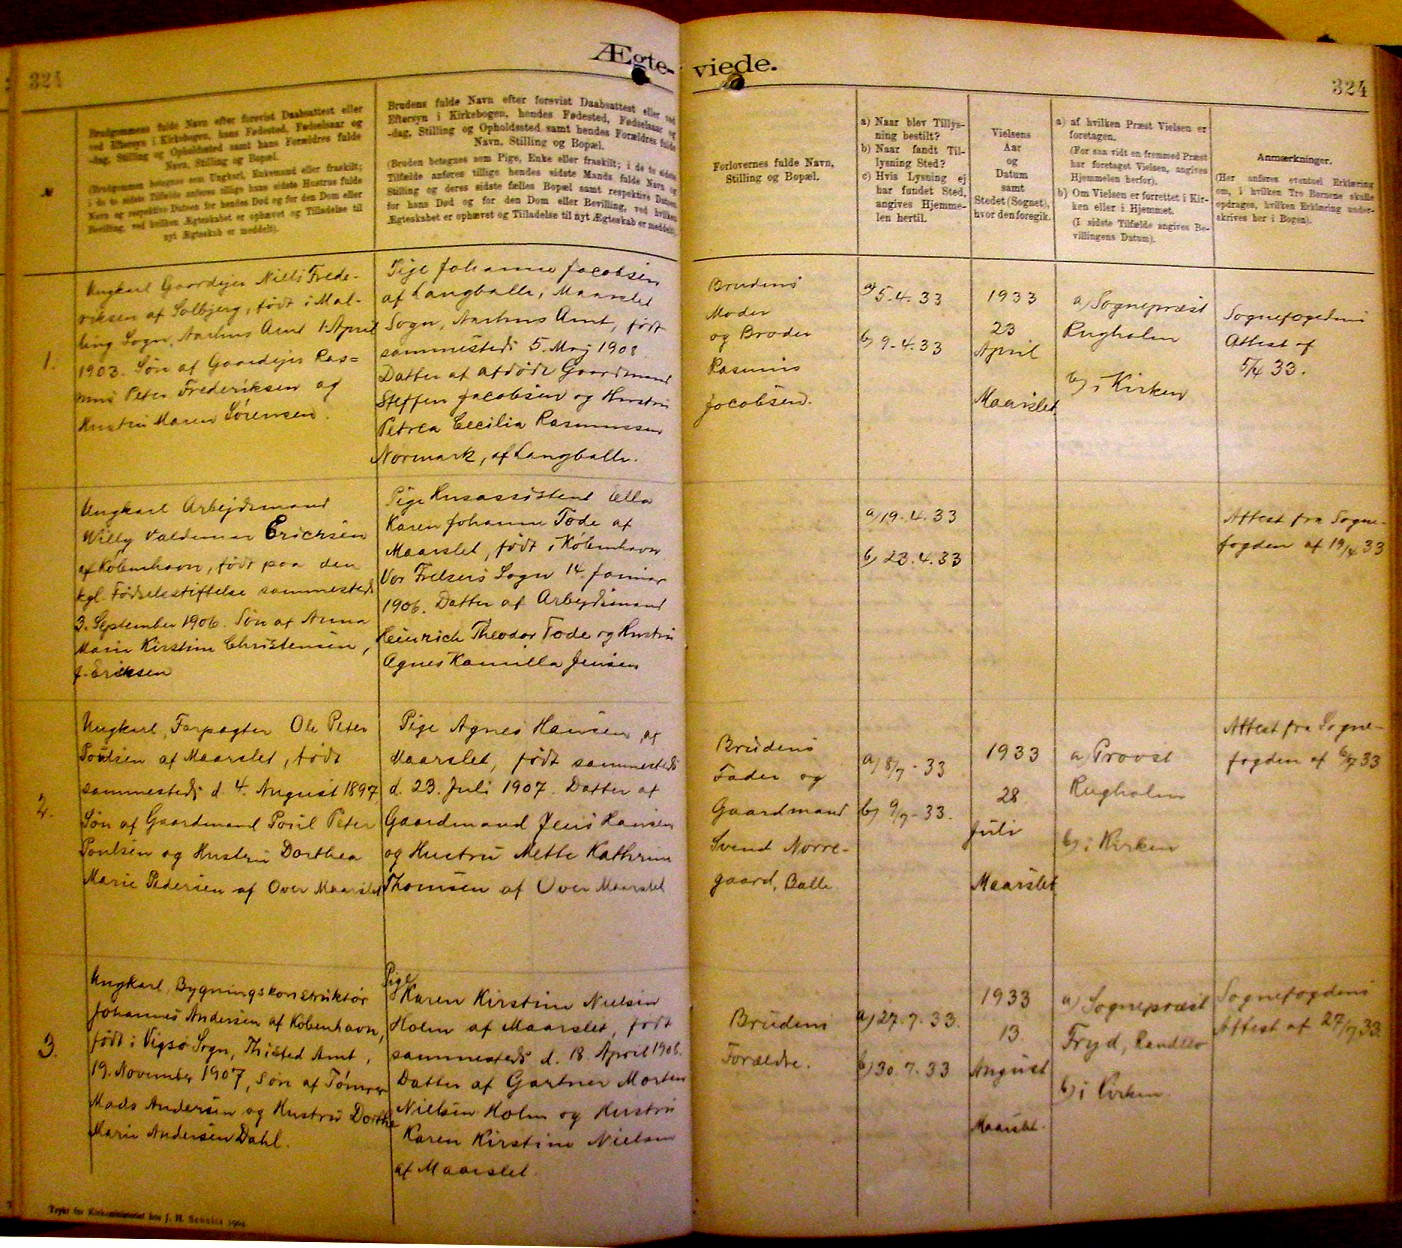 324
Ægte-
viede.
324
Brudgommens fulde Navn efter forevist Daabsattest eller
ved Eftersyn i Kirkebogen, hans Fødested, Fødselsaar og
-dag, Stilling og Opholdssted samt hans Forældres fulde
Navn, Stilling og Bopæl.
(Brudgommen betegnes som Ungkarl, Enkemand eller fraskilt;
i de to sidste Tilfælde anføres tillige hans sidste Hustrus fulde
Navn og respektive Datoen for hendes Død og for den Dom eller
Bevilling, ved hvilken Ægteskabet er ophævet og Tilladelse til
nyt Ægteskab er meddelt).
Brudens fulde Navn efter forevist Daabsattest eller ved
Eftersyn i Kirkebogen, hendes Fødested, Fødselsaar og
-dag, Stilling og Opholdssted samt hendes Forældres fulde
Navn, Stilling og Bopæl.
(Bruden betegnes som Pige, Enke eller fraskilt; i de to sidste
Tilfælde anføres tillige hendes sidste Mands fulde Navn og
Stilling og deres sidste fælles Bopæl samt respektive Datoen
for hans Død og for den Dom eller Bevilling, ved hvilken
Ægteskabet er ophævet og Tilladelse til nyt Ægteskab er meddelt).
Forlovernes fulde Navn,
Stilling og Bopæl.
a) Naar blev Tillys-
ning bestilt?
b) Naar fandt Til-
lysning Sted?
c) Hvis Lysning ej
har fundet Sted,
angives Hjemme-
len hertil.
Vielsens
Aar
og
Datum
samt
Stedet (Sognet),
hvor den foregik.
a) af hvilken Præst Vielsen er
foretagen.
(For saa vidt en fremmed Præst
har foretaget Vielsen, angives
Hjemmelen herfor).
b) Om Vielsen er forrettet i Kir-
ken eller i Hjemmet.
(I sidste Tilfælde angives Be-
villingens Datum).
Anmærkninger.
(Her anføres eventuel Erklæring
om, i hvilken Tro Børnene skulle
opdrages, hvilken Erklæring under-
skrives her i Bogen).
1.
Ungkarl Gaardejer Niels Frede-
riksen af Solbjerg, født i Mal-
ling Sogn, Aarhus Amt 1 April
1903. Søn af Gaardejer Ras=
mus Peter Frederiksen og
Hustru Maren Sørensen.
Pige Johanne Jacobsen
af Langballe, Maarslet
Sogn, Aarhus Amt, født
sammesteds 5. Maj 1908.
Datter af afdøde Gaardmand
Steffen Jacobsen og Hustru
Petrea Cecilia Rasmussen
Normark, af Langballe.
Brudens
Moder
og Broder
Rasmus
Jacobsen.
a) 5.4.33
b) 9.4.33
1933
23
April
Maarslet
a) Sognepræst
Rugholm
b) i Kirken
Sognefogedens
Attest af
5/4 33.
Ungkarl Arbejdsmand
Willy Valdemar Ericksen
af København, født paa den
kgl. Fødselsstiftelse sammesteds
3. September 1906. Søn af Anna
Marie Kirstine Christensen,
f. Eriksen
Pige Husassistent Ella
Karen Johanne Tode af
Maarslet, født i København
Vor Frelsers Sogn 14. Januar
1906. Datter af Arbejdsmand
Heinrich Theodor Tode og Hustru
Agnes Kamilla Jensen
a) 19.4.33
b) 23.4.33
Attest fra Sogne-
fogden af 19/4 33
2.
Ungkarl, Forpagter Ole Peter
Poulsen af Maarslet, født
sammesteds d. 4. August 1897,
Søn af Gaardmand Poul Peter
Poulsen og Hustru Dorthea
Marie Pedersen af Over Maarslet
Pige Agnes Hansen af
Maarslet, født sammesteds
d. 23. Juli 1907. Datter af
Gaardmand Jens Hansen
og Hustru Mette Kathrine
Thomsen af Over Maarslet
Brudens
Fader og
Gaardmand
Svend Nørre-
gaard, Balle
a) 8/7 - 33
b) 9/7 - 33.
1933
28
Juli
Maarslet
a) Provst
Rugholm
b) i Kirken
Attest fra Sogne-
fogden af 6/7 33
3.
Ungkarl, Bygningskonstruktør
Johannes Andersen af København,
født i Vigsø Sogn, Thisted Amt,
19. November 1907, Søn af Tømrer
Mads Andersen og Hustru Dorthe
Marie Andersen Dahl.
Pige
Karen Kirstine Nielsen
Holm af Maarslet, født
sammesteds d. 18. April 1908.
Datter af Gartner Morten
Nielsen Holm og Hustru
Karen Kirstine Nielsen
af Maarslet.
Brudens
Forældre.
a) 27.7.33.
b) 30.7.33
1933
13.
August
Maarslet.
a) Sognepræst
Fryd, Randlev
b) i Kirken
Sognefogdens
Attest af 27/7 33.
Trykt for Kirkeministeriet hos J. H. Schultz 1904.